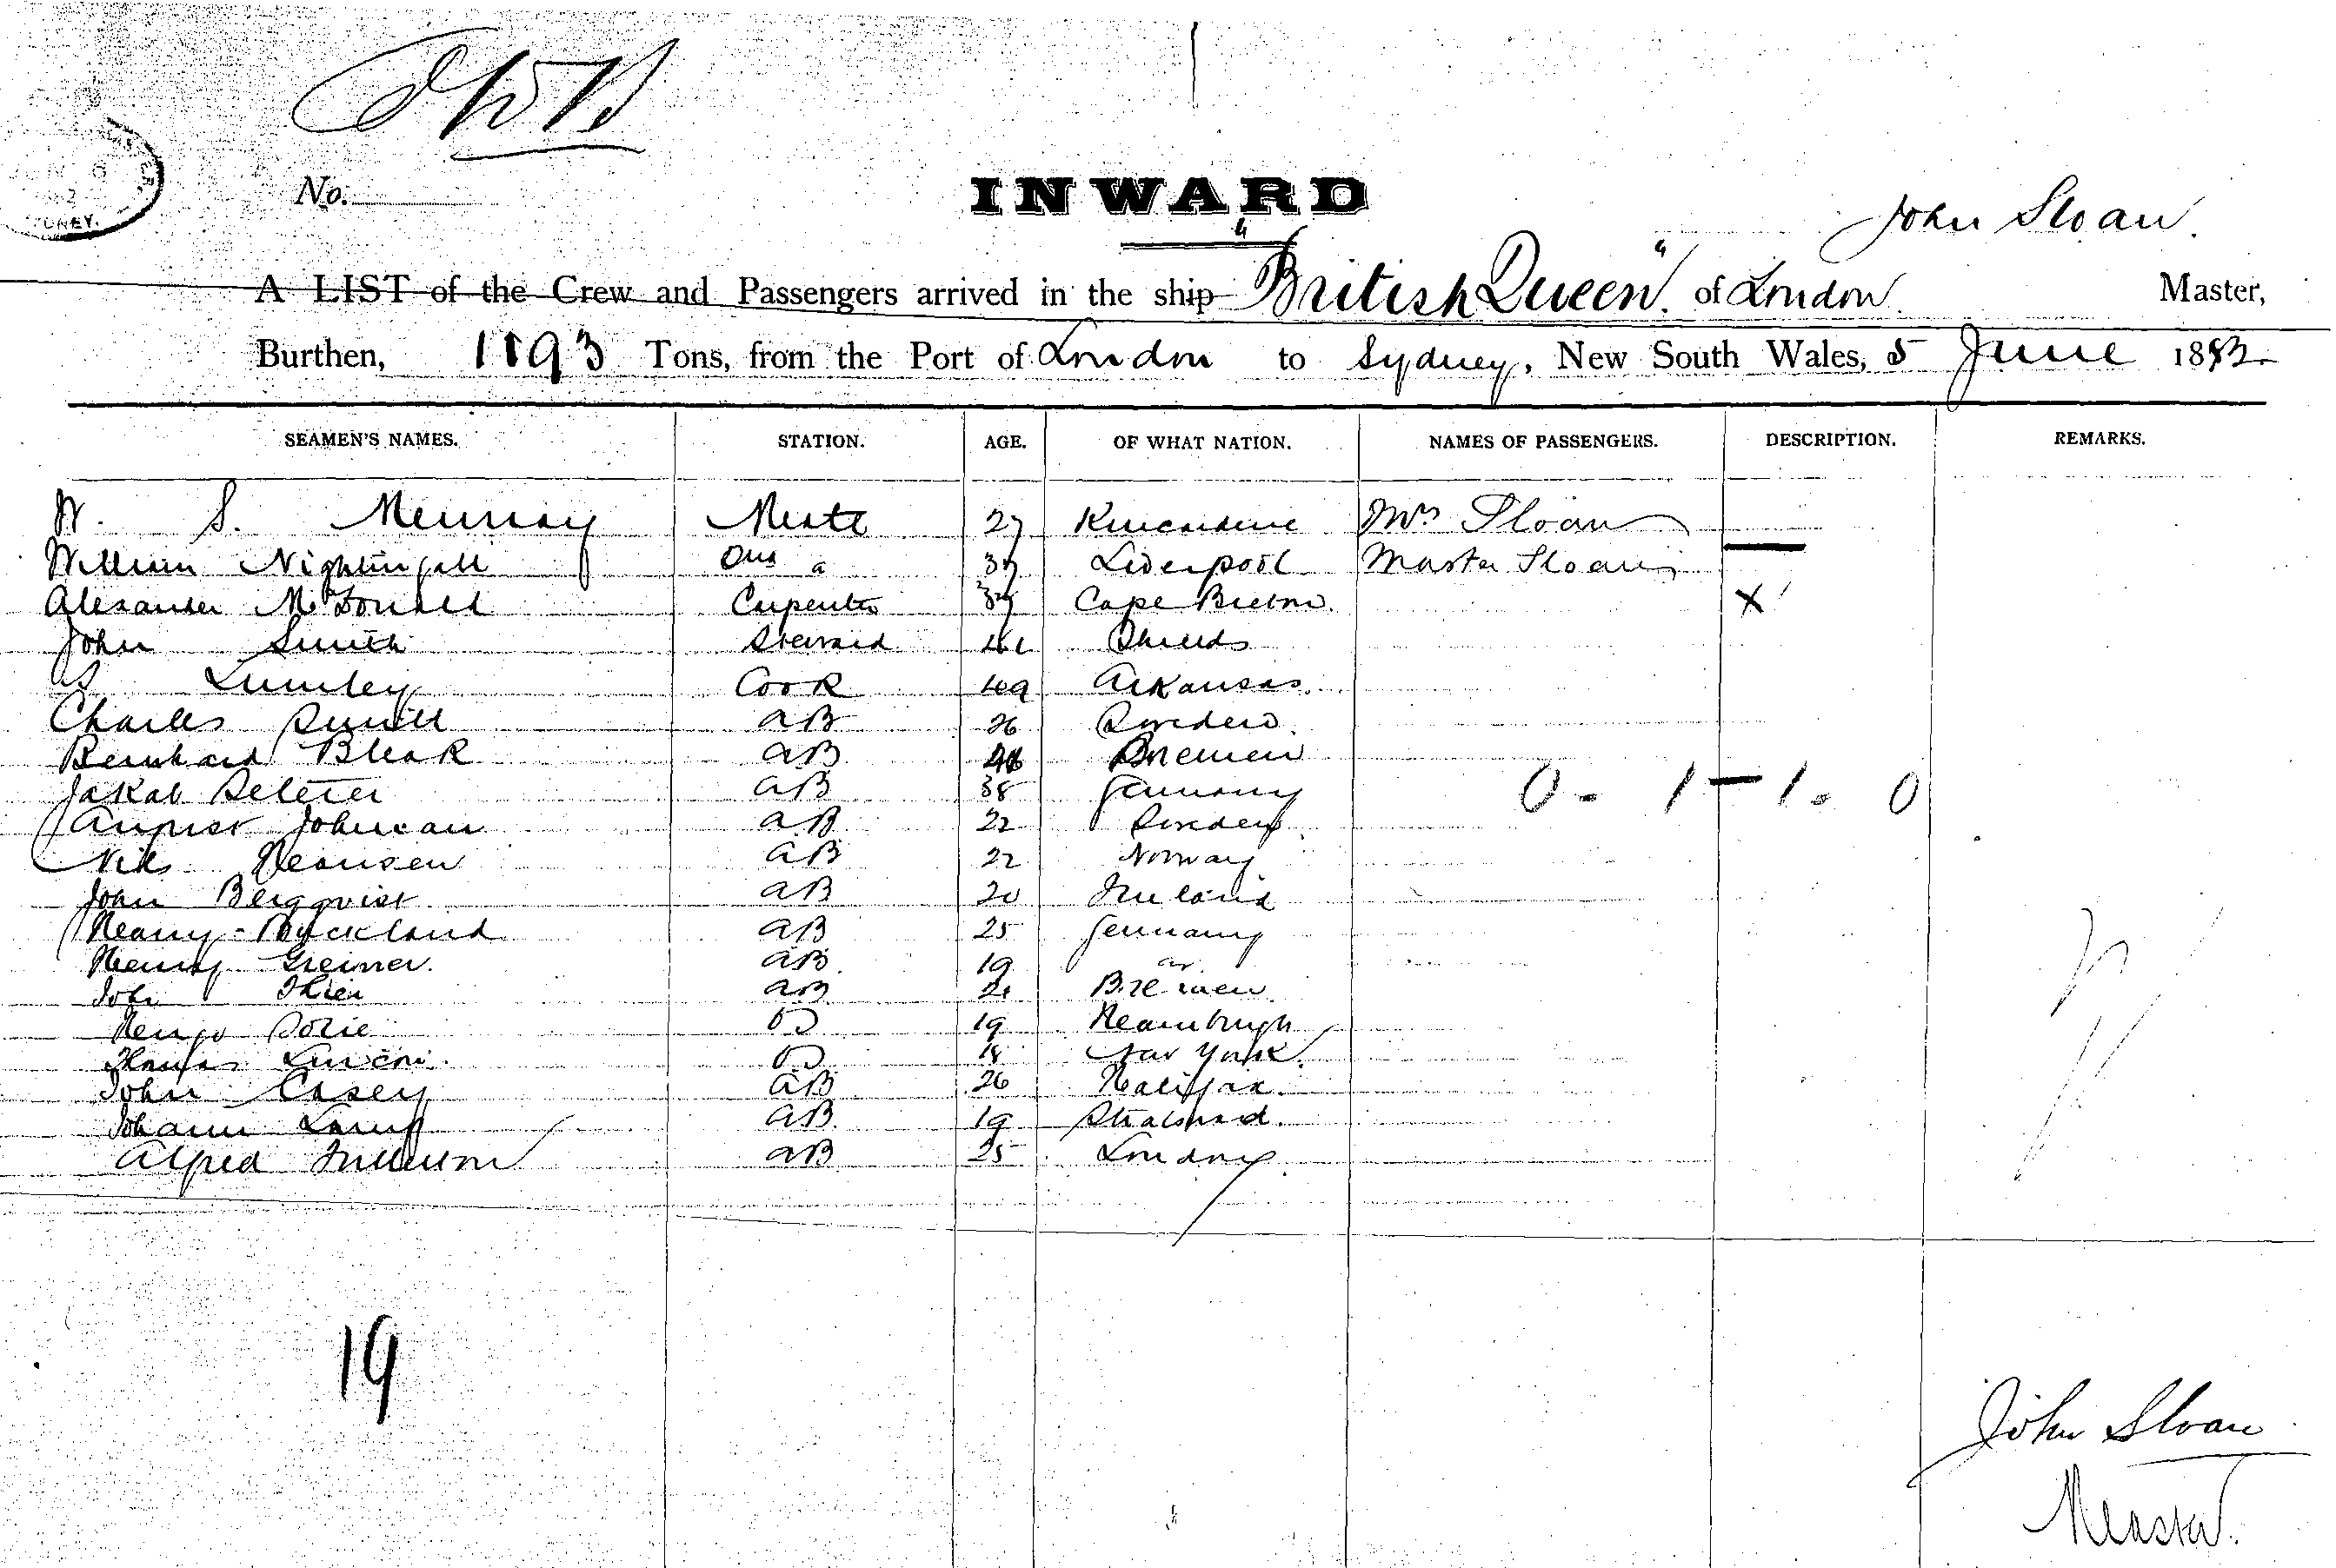 JWB
JUN 6
No.
INWARD
John Sloan
A LIST of the Crew and Passengers arrived in the ship "British Queen" of London Master,
Burthen, 1193 Tons, from the Port of London to Sydney, New South Wales, 5 June 1882
SEAMEN'S NAMES. STATION. AGE. OF WHAT NATION. NAMES OF PASSENGERS. DESCRIPTION. REMARKS.
W. S. Murray Mate 27 Kincardine Mrs Sloan
William Nightingall 37 Liverpool Master Sloan
Alexander McDonald Carpenter 37 Cape Breton X
John Smith Steward 41 Shields
Lumley Cook 49 Arkansas
Charles AB 26 Sweden
Bernhard Bleak AB Bremen
Jakab AB 38 Germany 0 - 1 - 1 . 0
August Johnsan AB 22 Sweden
Nils Hansen AB 22 Norway
John Bergqvist AB 20
Henry AB 25 Germany
Henry Greiner AB 19
John Thien AB 21 Bremen
OS 19 Hamburgh
Thomas OS 18 New York
John Casey AB 26 Halifax
Johann Kamp AB 19 Stralsund
Alfred AB 25 London
19
John Sloan
Master.